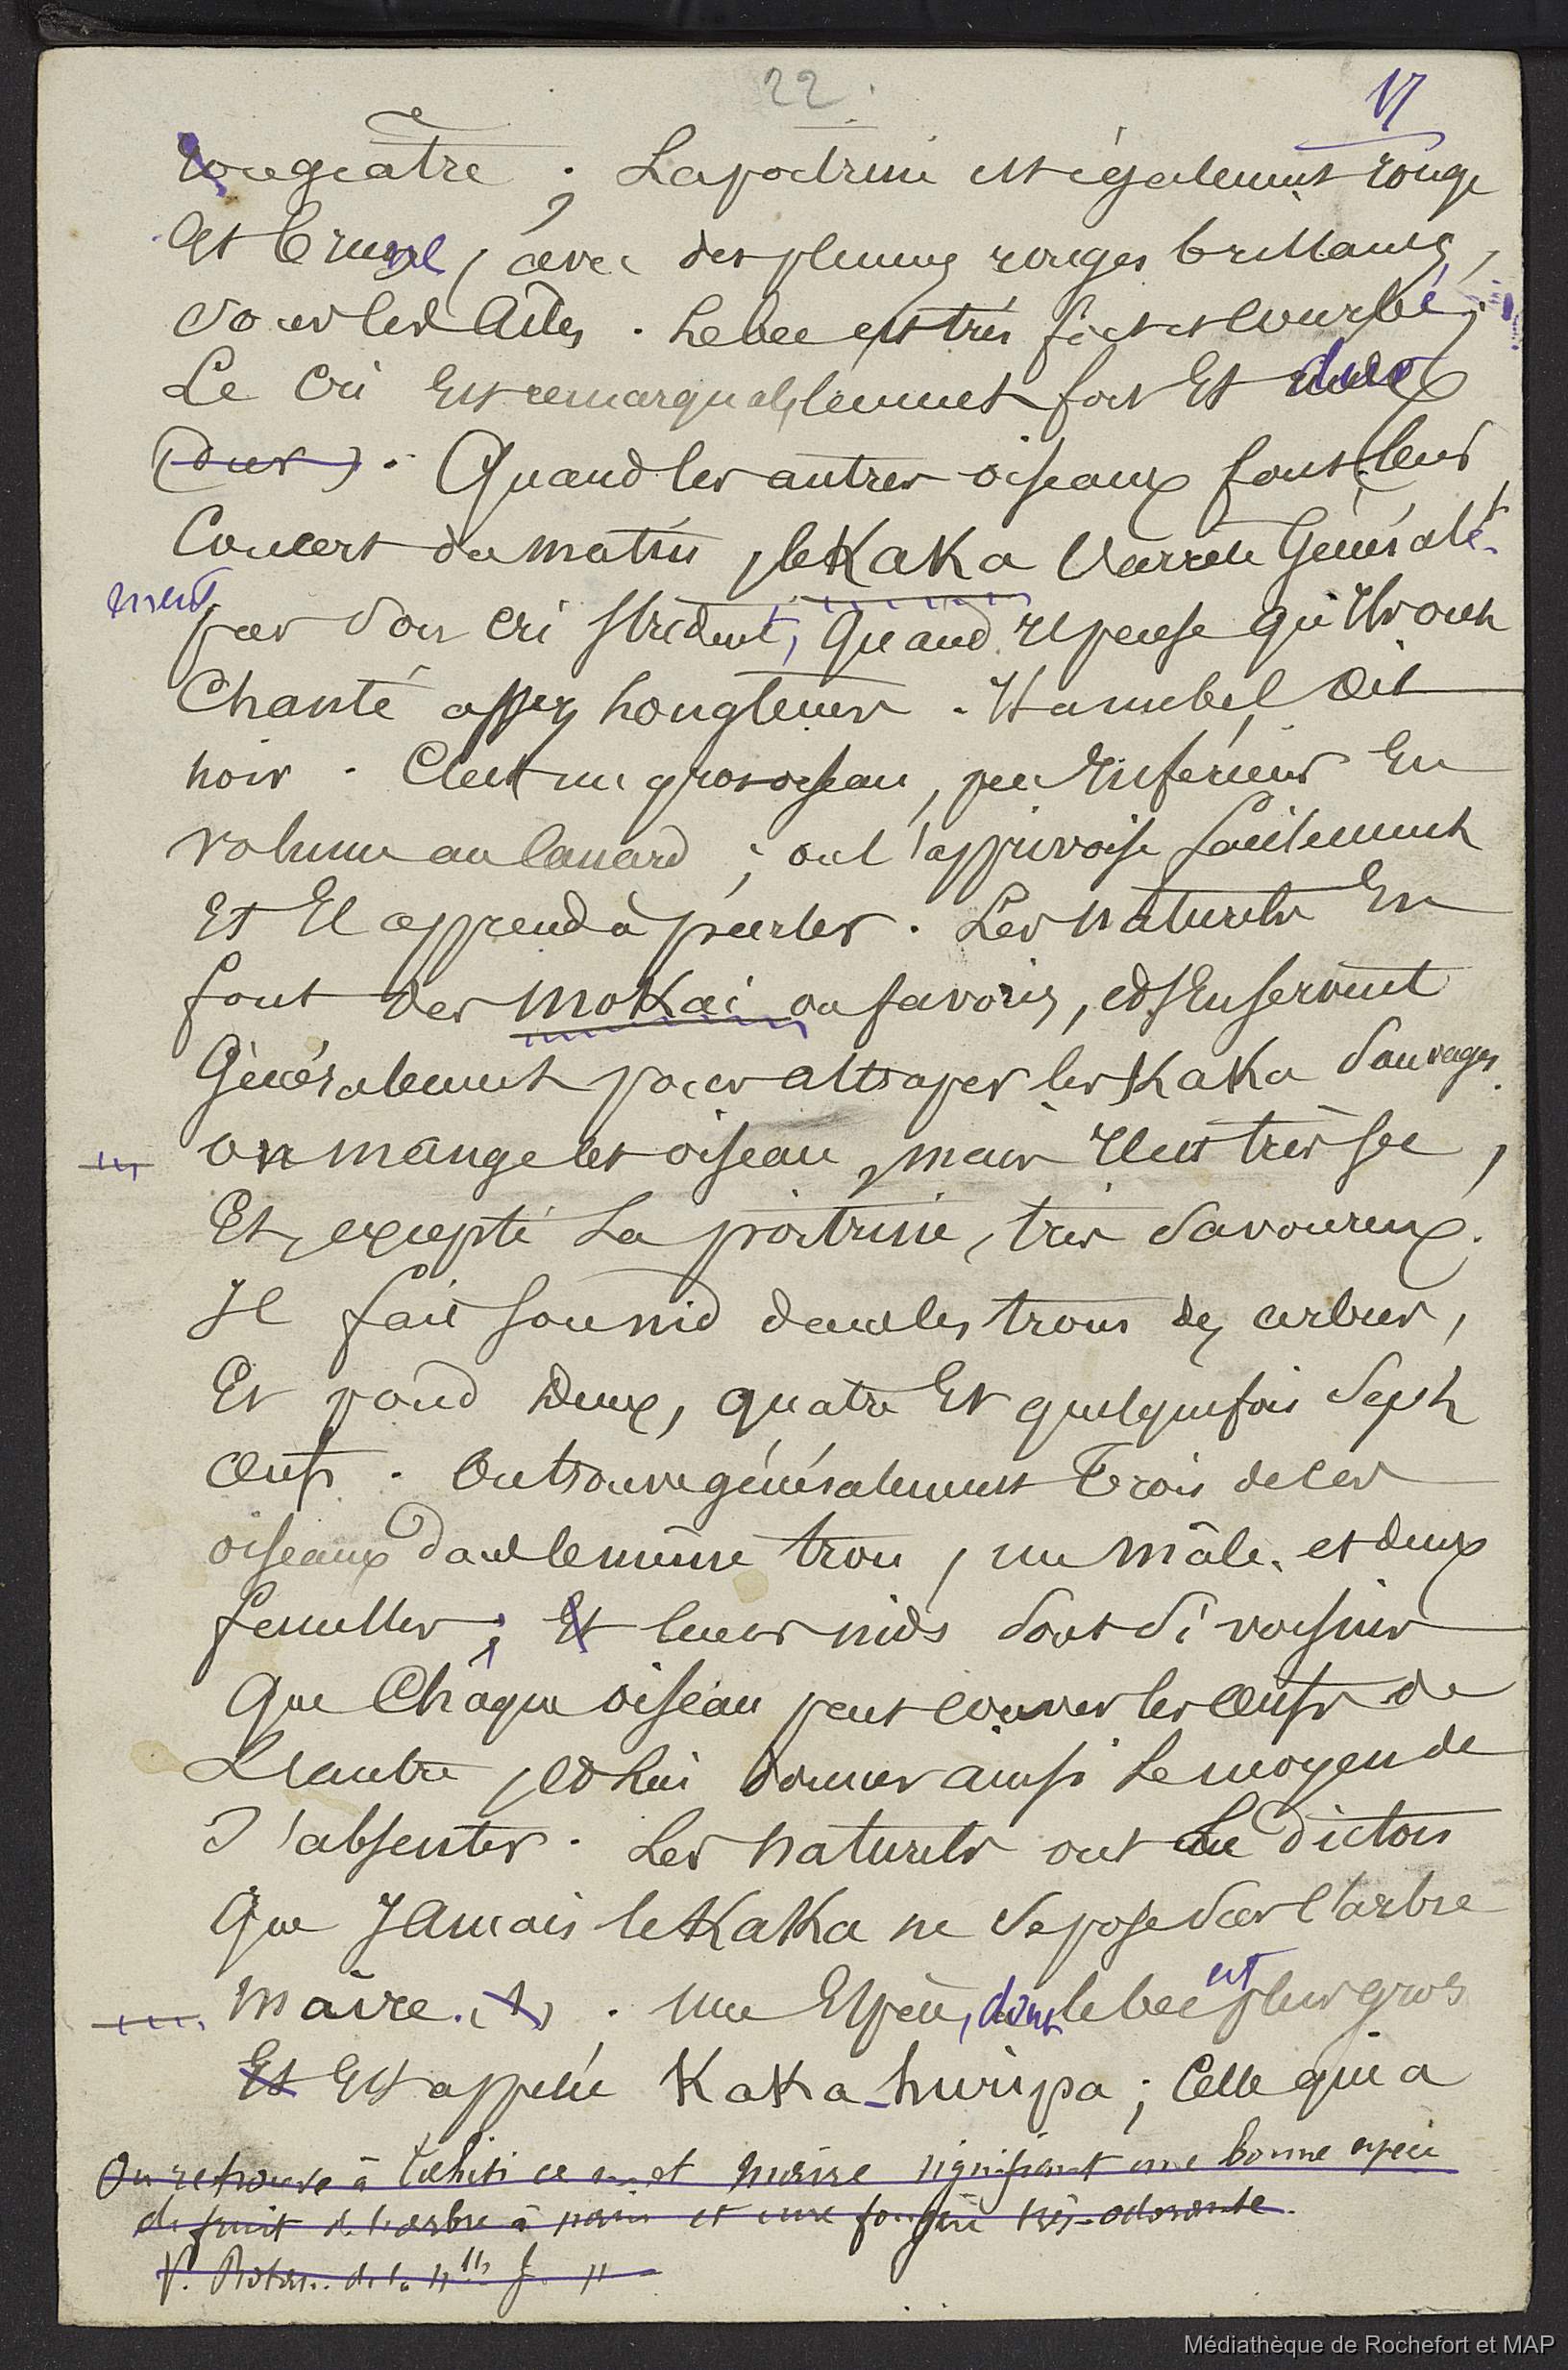 22.
17
rougeâtre ; La poitrine est également rouge
Et brune, avec des plumes rouges brillantes,
sous les ailes. Le bec est très fort et courbé ;
Le cri Est remarquablement fort Et dur
(dur). Quand les autres oiseaux font leur
Concert du matin, le KaKa l'arrête Générale-
ment
par son cri strident, quand il pense qu'ils ont
Chanté assez longtemps. Hamebel dit
noir. C'est un gros oiseau, peu Inférieur En
volume au Canard ; on l'apprivoise facilement
Et Il apprend à parler. Les naturels En
font des moKai ou favoris, et s'En servent
Généralement pour attraper les KaKa Sauvages.
on mange cet oiseau, mais Il est très sec,
Et, excepté La poitrine, très Savoureux.
Il fait son nid dans les trous des arbres,
Et pond Deux, quatre Et quelquefois Sept
Œufs. On trouve généralement Trois de ces
oiseaux dans le même trou, un mâle, et deux
femelles ; Et leurs nids sont si voisins
Que Châque oiseau peut couver les Œufs de
L'autre, et lui donner ainsi Le moyen de
S'absenter. Les naturels ont Le dicton
Que Jamais le KaKa ne se pose sur l'arbre
Maire. (1). Une Espèce, dont le bec est plus gros
Et Est appelée KaKa-huripa ; Celle qui a
On retrouve à Tahiti ce mot maire signifiant une bonne espèce
de fruit de l'arbre à pain et une fougère très-odorante.